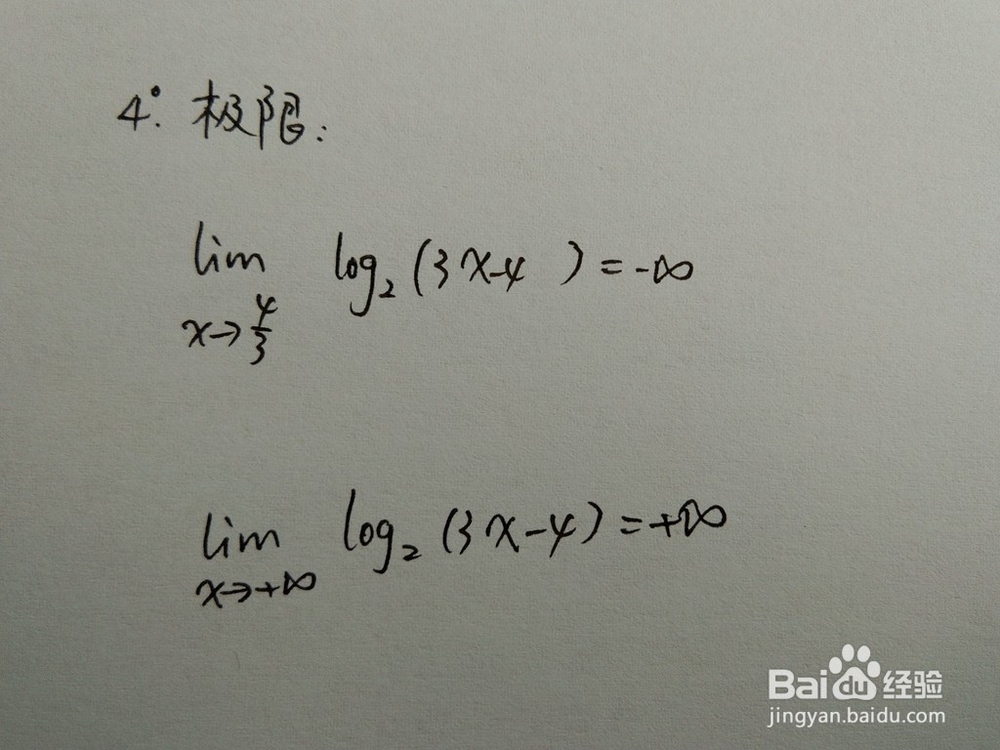 4°. 极限:
lim log₂(3x-4 ) = -∞
x→4/3
lim log₂(3x-4) = +∞
x→+∞
Bai du 经验
jingyan.baidu.com